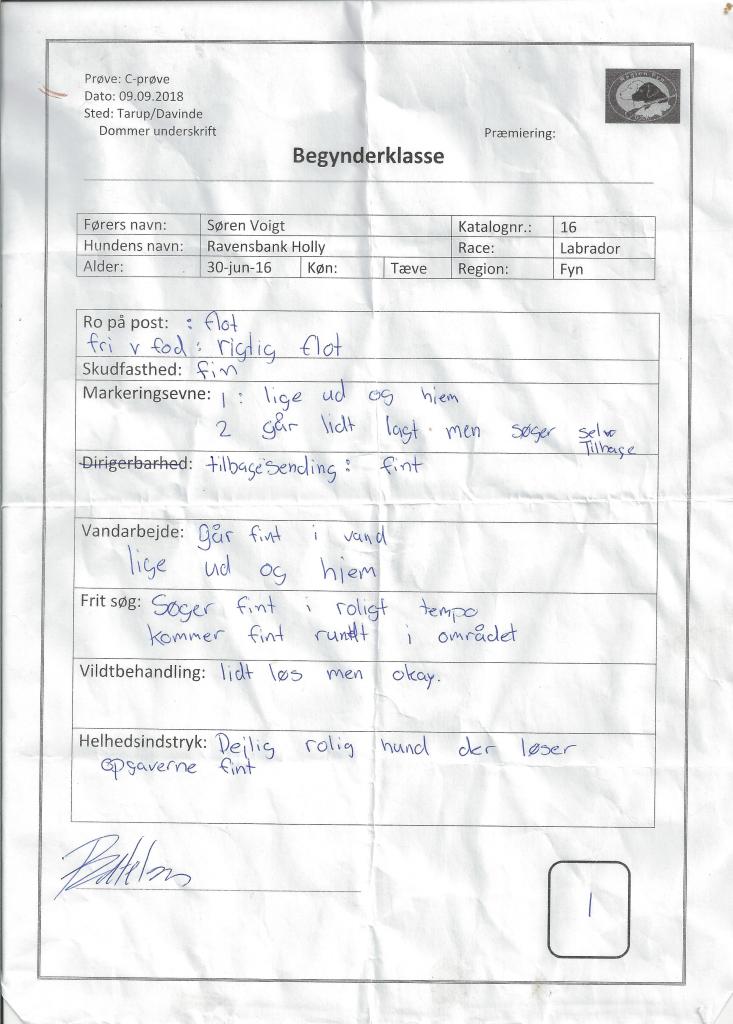 Prøve: C-prøve
Dato: 09.09.2018
Sted: Tarup/Davinde
Dommer underskrift
Præmiering:
Region Fyn
Begynderklasse
Førers navn: Søren Voigt Katalognr.: 16
Hundens navn: Ravensbank Holly Race: Labrador
Alder: 30-jun-16 Køn: Tæve Region: Fyn
Ro på post: : flot
fri v fod: rigtig flot
Skudfasthed: fin
Markeringsevne: 1: lige ud og hjem
2 går lidt lagt men søger selv
Tilbage
Dirigerbarhed: tilbagesending: fint
Vandarbejde: går fint i vand
lige ud og hjem
Frit søg: Søger fint i roligt tempo
kommer fint rundt i området
Vildtbehandling: lidt løs men okay.
Helhedsindstryk: Dejlig rolig hund der løser
opgaverne fint
1